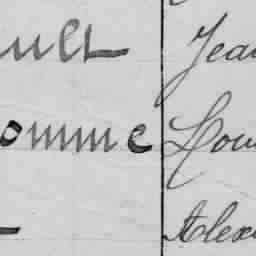 ault Jea
omme Lou
Alex